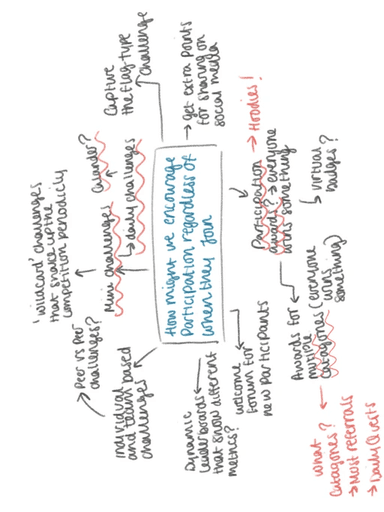 How might we encourage
Participation regardless of
when they join
Capture
the flag type
challenge
→ get extra points
for sharing on
social media
Mini challenges
↳ daily challenges
'wildcard' challenges
that shake up the
competition periodicly
Participation → Hoodies!
awards? → everyone
wins something
↳ virtual
badges?
Peer vs Peer
challenges?
individual
and team based
challenges
Dynamic
leaderboards
that show different
metrics?
welcome
forum for
new participants
Awards for
multiple
catagories (everyone
wins
something)
what
catagories?
→ Most referrals
→ Daily